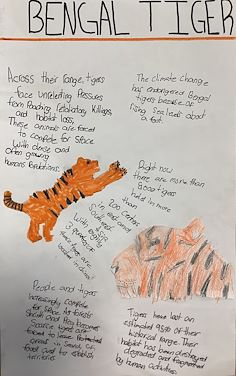 BENGAL TIGER
Across their range, tigers
face unrelenting Pressures
from Poaching, retaliatory killings,
and habitat loss,
These animals are forced
to compete for space
with dense and
often growing
humans Populations.
The climate change
has endangered Bengal
tigers because of
rising sea levels about
a foot.
Right now
there are more than
8000 tigers
held in more
than
200 centers
in and
South east
With
3
Tigers have lost an
estimated 95% of their
historical range. Their
habitat has been destroyed
degraded and fragmented
by human activities.
People and tigers
increasingly compete
for space. As forests
Shrink and Prey becomes
Scarce tigers are
forced to leave
areas in search of
food and to establish
territories